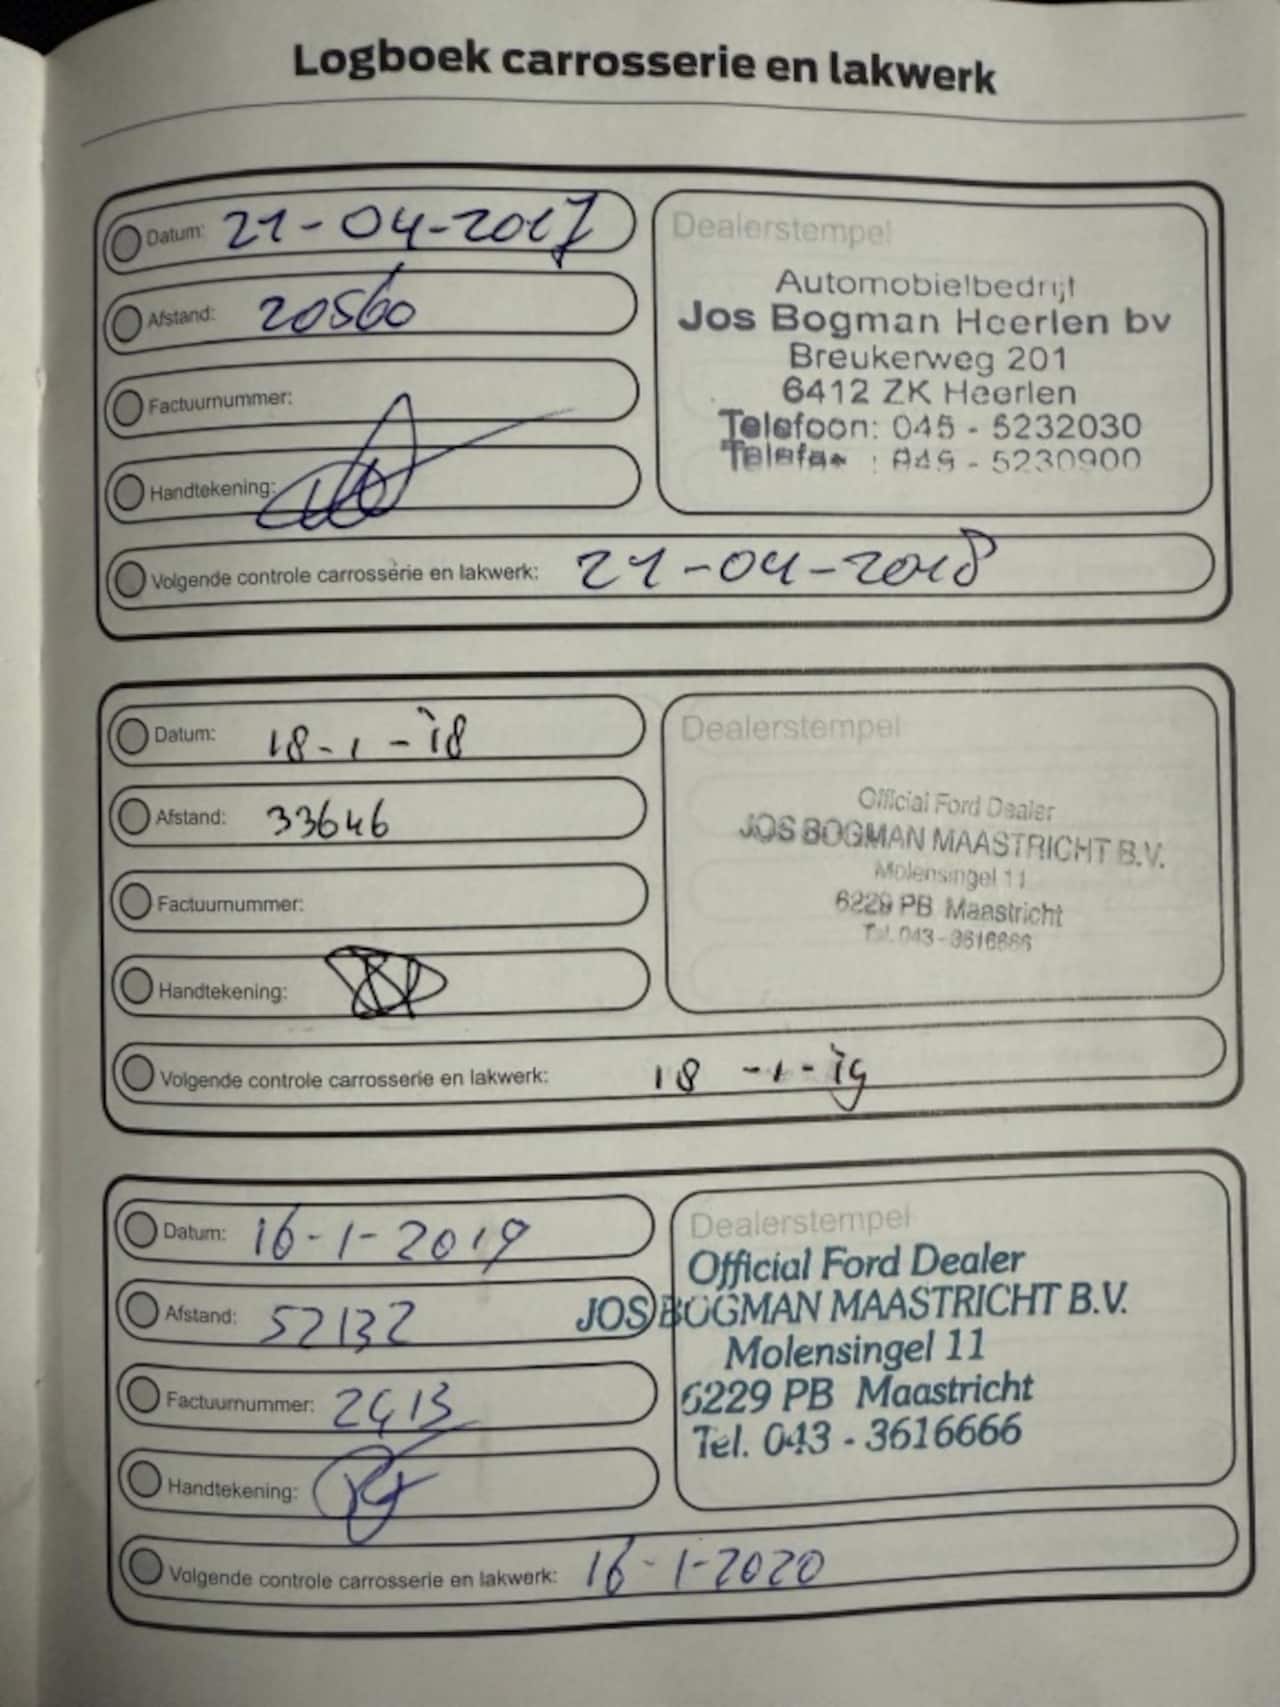 Logboek carrosserie en lakwerk
Datum: 21-04-2017
Afstand: 20560
Factuurnummer:
Handtekening:
Volgende controle carrosserie en lakwerk: 21-04-2018
Dealerstempel
Automobielbedrijf
Jos Bogman Heerlen bv
Breukerweg 201
6412 ZK Heerlen
Telefoon: 045 - 5232030
Telefax : 045 - 5230900
Datum: 18-1-'18
Afstand: 33646
Factuurnummer:
Handtekening:
Volgende controle carrosserie en lakwerk: 18-1-'19
Dealerstempel
Official Ford Dealer
JOS BOGMAN MAASTRICHT B.V.
Molensingel 11
6229 PB Maastricht
Tel. 043-3616666
Datum: 16-1-2019
Afstand: 52132
Factuurnummer: 2413
Handtekening:
Volgende controle carrosserie en lakwerk: 16-1-2020
Dealerstempel
Official Ford Dealer
JOS BOGMAN MAASTRICHT B.V.
Molensingel 11
6229 PB Maastricht
Tel. 043 - 3616666